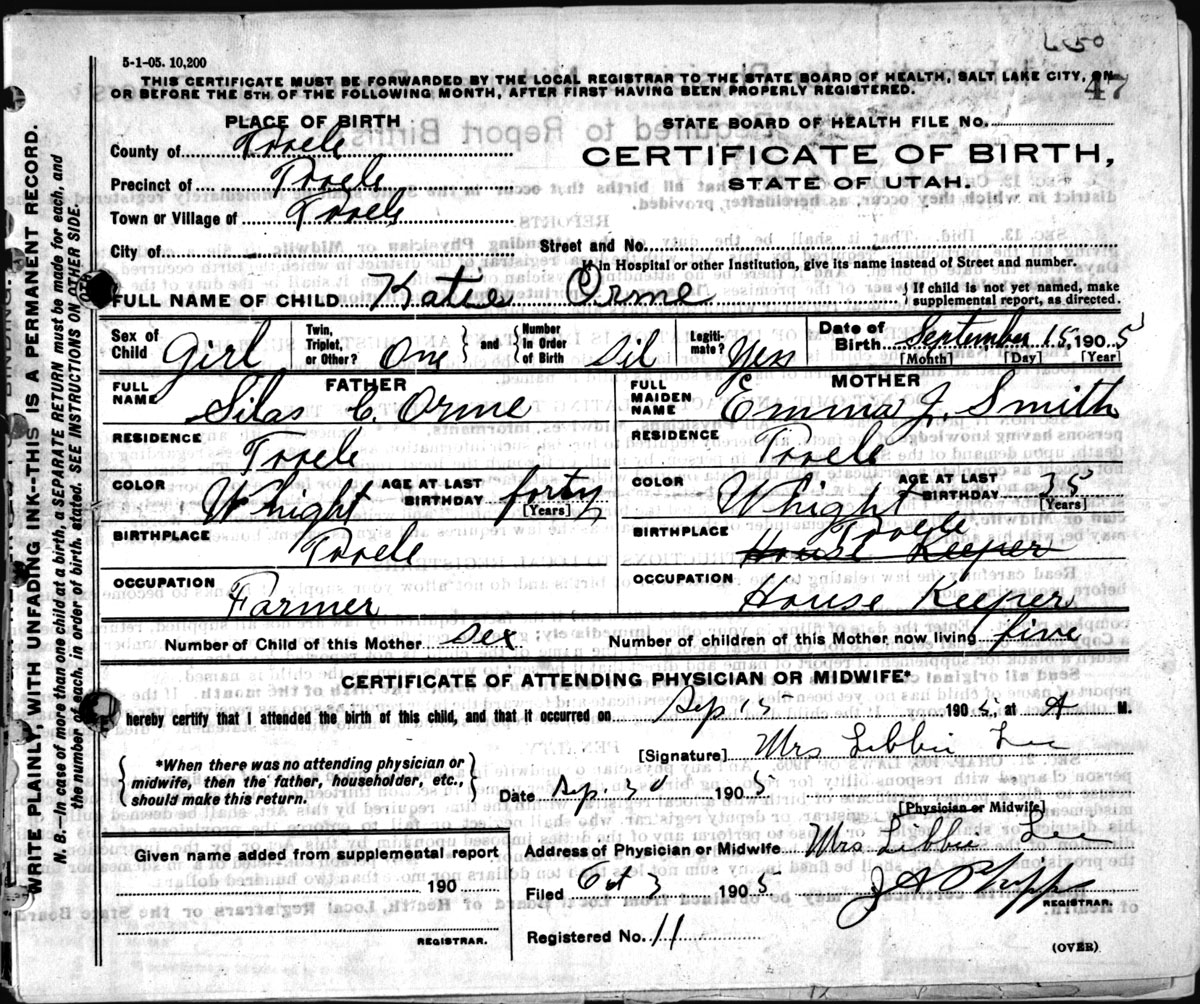 650
5-1-05. 10,200
THIS CERTIFICATE MUST BE FORWARDED BY THE LOCAL REGISTRAR TO THE STATE BOARD OF HEALTH, SALT LAKE CITY, ON
OR BEFORE THE 5TH OF THE FOLLOWING MONTH, AFTER FIRST HAVING BEEN PROPERLY REGISTERED.
47
PLACE OF BIRTH
STATE BOARD OF HEALTH FILE NO.
County of Tooele
CERTIFICATE OF BIRTH,
Precinct of Tooele
STATE OF UTAH.
Town or Village of Tooele
City of
Street and No.
If in Hospital or other Institution, give its name instead of Street and number.
FULL NAME OF CHILD Katie Orme
If child is not yet named, make supplemental report, as directed.
Sex of Child Girl Twin, Triplet, or Other? One and Number In Order of Birth Legitimate? Yess Date of Birth September 15, 1905
[Month] [Day] [Year]
FATHER MOTHER
FULL NAME Silas C. Orme FULL MAIDEN NAME Emma J. Smith
RESIDENCE Tooele RESIDENCE Tooele
COLOR Whight AGE AT LAST BIRTHDAY forty [Years] COLOR Whight AGE AT LAST BIRTHDAY 35 [Years]
BIRTHPLACE Tooele BIRTHPLACE Tooele House Keeper
OCCUPATION Farmer OCCUPATION House Keeper
Number of Child of this Mother sex Number of children of this Mother now living five
CERTIFICATE OF ATTENDING PHYSICIAN OR MIDWIFE*
I hereby certify that I attended the birth of this child, and that it occurred on Sep 15 1905, at A M.
[Signature] Mrs Libbie Lee
*When there was no attending physician or
midwife, then the father, householder, etc.,
should make this return.
Date Sp. 30 1905
[Physician or Midwife]
Given name added from supplemental report
190
REGISTRAR.
Address of Physician or Midwife Mrs Libbie Lee
Filed Oct 3 1905
REGISTRAR.
Registered No. 11
(OVER)
WRITE PLAINLY, WITH UNFADING INK--THIS IS A PERMANENT RECORD.
N. B.—In case of more than one child at a birth, a SEPARATE RETURN must be made for each, and
the number of each. in order of birth. stated. SEE INSTRUCTIONS ON OTHER SIDE.